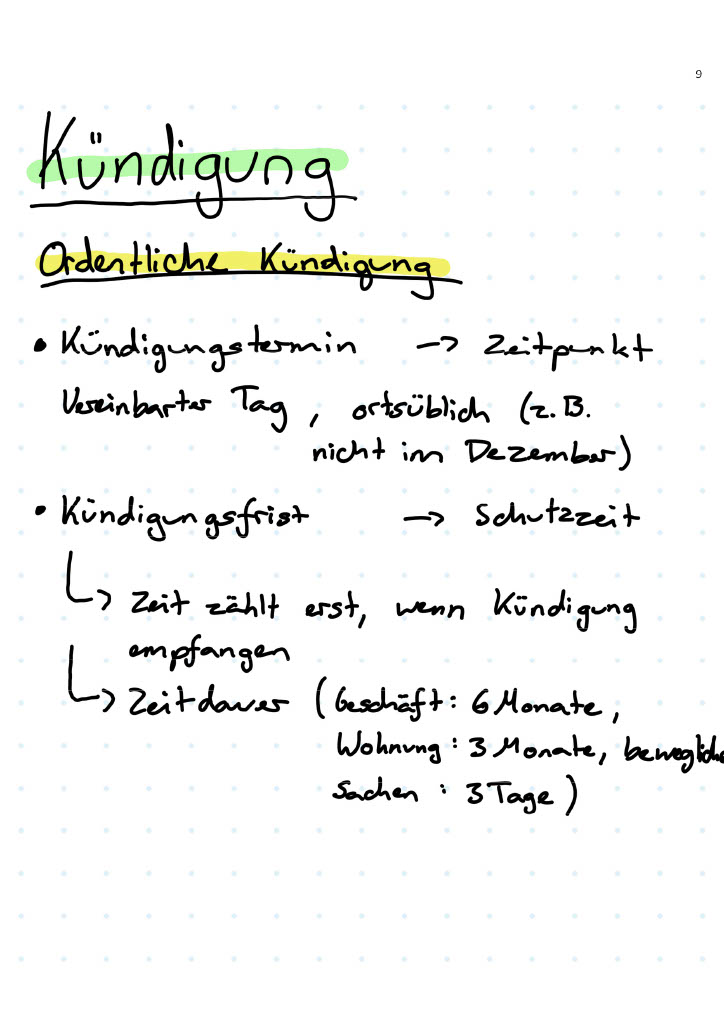 9
Kündigung
Ordentliche Kündigung
• Kündigungstermin → Zeitpunkt
Vereinbarter Tag, ortsüblich (z.B.
nicht im Dezember)
• Kündigungsfrist → Schutzzeit
↳ Zeit zählt erst, wenn Kündigung
empfangen
↳ Zeitdauer (Geschäft: 6 Monate,
Wohnung: 3 Monate, bewegliche
Sachen: 3 Tage)